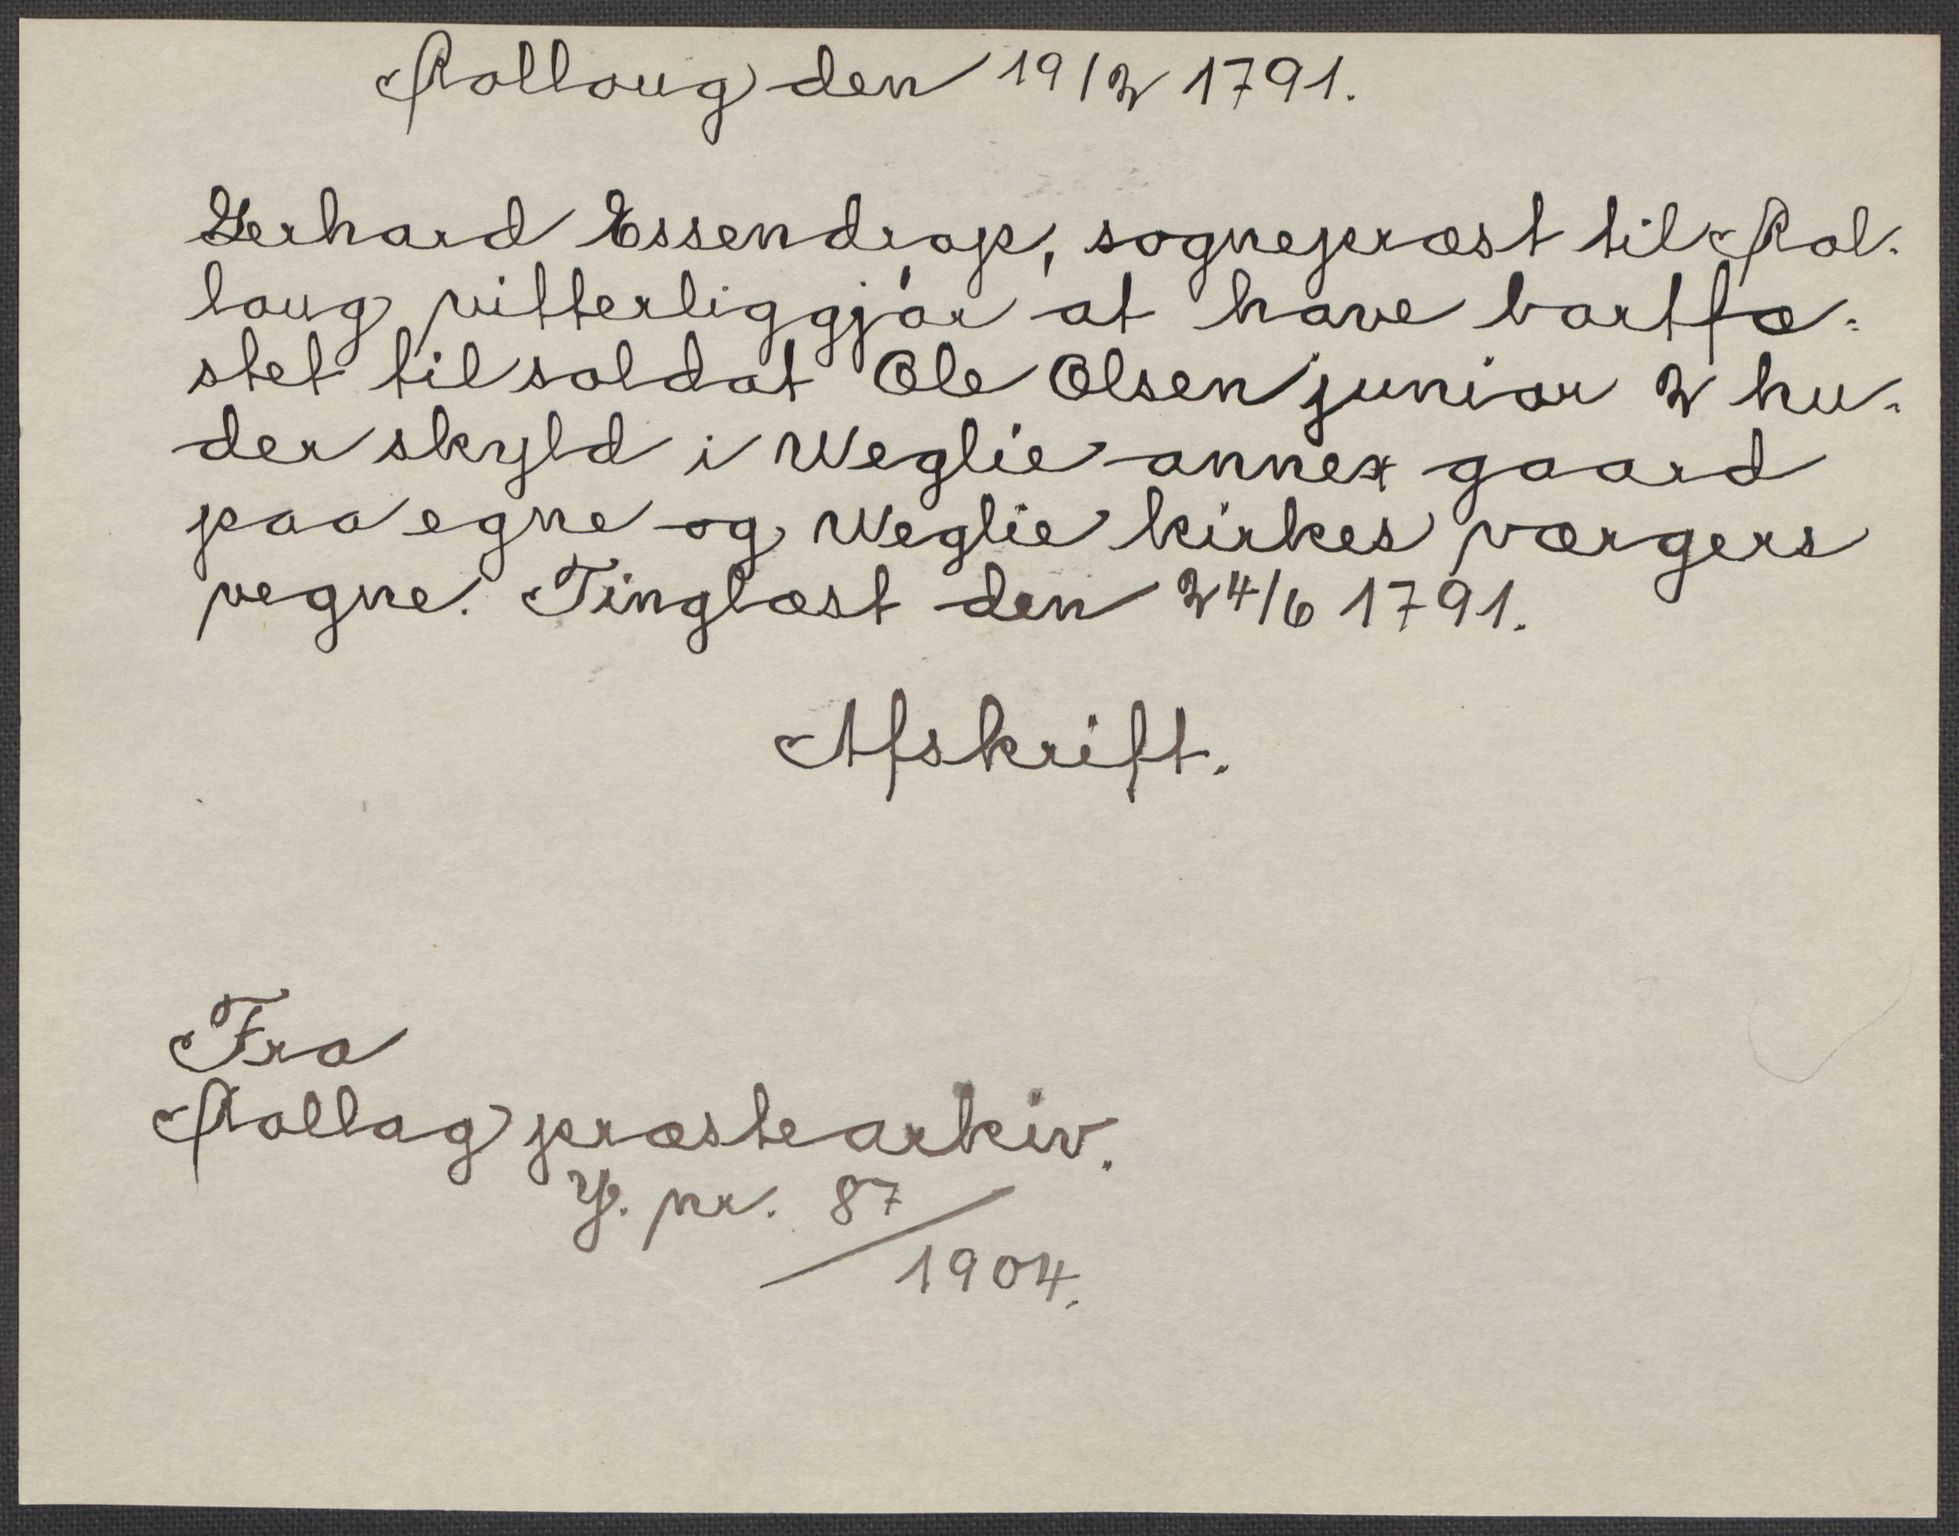 Rolloug den 19/2 1791.
Gerhard Essendrop, sognepræst til Rol-
loug vitterliggjør at have bortfæ-
stet til soldat Ole Olsen junior 2 hu-
der skyld i Weglie annex gaard
paa egne og Weglie kirkes værgers
vegne. Tinglæst den 24/6 1791.
Afskrift.
Fra
Rollag præstearkiv.
Y. nr. 87
/1904.